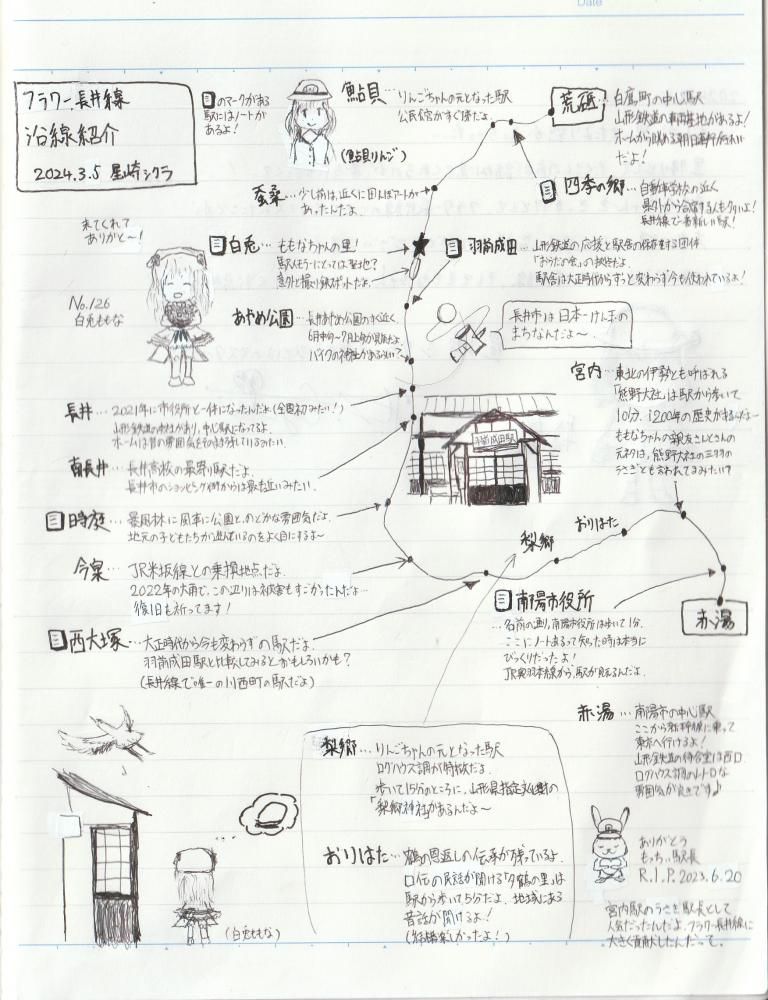 Date
フラワー長井線
沿線紹介
2024.3.5 星崎シクラ
のマークがある
駅にはノートが
あるよ!
鮎貝…りんごちゃんの元となった駅
公民館がすぐ傍だよ。
(鮎貝りんご)
荒砥…白鷹町の中心駅
山形鉄道の車両基地があるよ!
だよ!
四季の郷…自動車学校の近く
県外から合宿する人も多いよ!
長井線で一番新しい駅!
蚕桑…少し前は、近くに田んぼアートが
あったんだよ。
来てくれて
ありがと〜!
No.126
白兎ももな
白兎…ももなちゃんの里!
駅メモラーにとっては聖地?
意外と撮り鉄スポットだよ。
羽前成田…山形鉄道の応援と駅舎の保存をする団体
「おらだの会」の拠点だよ
駅舎は大正時代からずっと変わらず今も使われているよ!
あやめ公園…長井あやめ公園のすぐ近く。
6月中旬〜7月上旬が見頃だよ。
バイクの神社があるらしい?
長井市は日本一けん玉の
まちなんだよ〜
宮内…東北の伊勢とも呼ばれる
「熊野大社」は駅から歩いて
10分。1200年の歴史があるんだよ〜
ももなちゃんの親友さんとさんの
元ネタは、熊野大社の三羽の
うさぎとも言われてるみたい?
長井…2021年に市役所と一体になったんだよ(全国初みたい!)
山形鉄道の本社があり、中心駅になってるよ。
ホームは昔の雰囲気をそのまま残しているみたい。
羽前成田駅
南長井…長井高校の最寄り駅だよ。
長井市のショッピング街からは最も近いみたい。
時庭…暴風林に風車に公園と、のどかな雰囲気だよ。
地元の子どもたちが遊んでいるのをよく目にするよ〜
今泉…JR米坂線との乗換地点だよ。
2022年の大雨で、この辺りは被害もすごかったんだ…
復旧も祈ってます!
おりはた
梨郷
赤湯
西大塚…大正時代から今も変わらずの駅だよ。
羽前成田駅と比較してみるとおもしろいかも?
(長井線で唯一の川西町の駅だよ)
南陽市役所
…名前の通り、南陽市役所は歩いて1分。
ここにノートあるって知った時は本当に
びっくりだったよ!
JR奥羽本線から、駅が見えるんだよ。
赤湯…南陽市の中心駅
ここから新幹線に乗って
東京へ行けるよ!
山形鉄道の待合室は西口。
ログハウス調のレトロな
雰囲気が良きです♪
梨郷…りんごちゃんの元となった駅
ログハウス調が特徴だよ。
歩いて15分のところに、山形県指定文化財の
「梨郷神社」があるんだよ〜
おりはた…鶴の恩返しの伝承が残っているよ。
口伝の民話が聞ける「夕鶴の里」は
駅から歩いて5分だよ。地域にある
昔話が聞けるよ!
(結構楽しかったよ!)
(白兎ももな)
ありがとう
もっちぃ駅長
R.I.P.2023.6.20
宮内駅のうさぎ駅長として
人気だったんだよ。フラワー長井線に
大きく貢献したんだって。